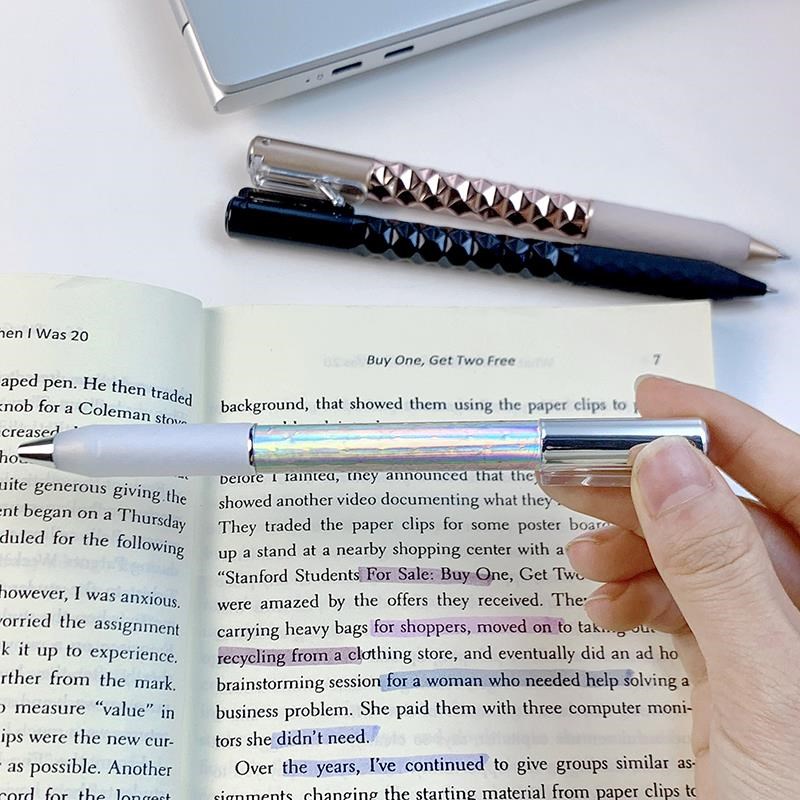 hen I Was 20
aped pen. He then traded
knob for a Coleman stove
creased
uite generous giving the
nt began on a Thursday
duled for the following
however, I was anxious.
orried the assignment
k it up to experience.
rther from the mark.
o measure “value” in
ips were the new cur-
as possible. Another
cord for the longest
Buy One, Get Two Free 7
background, that showed them using the paper clips to
before I fainted, they announced that they
showed another video documenting what they
They traded the paper clips for some poster board
up a stand at a nearby shopping center with a
“Stanford Students For Sale: Buy One, Get Two
were amazed by the offers they received. They
carrying heavy bags for shoppers, moved on to taking out
recycling from a clothing store, and eventually did an ad ho
brainstorming session for a woman who needed help solving a
business problem. She paid them with three computer moni-
tors she didn’t need.
Over the years, I’ve continued to give groups similar as-
signments, changing the starting material from paper clips to